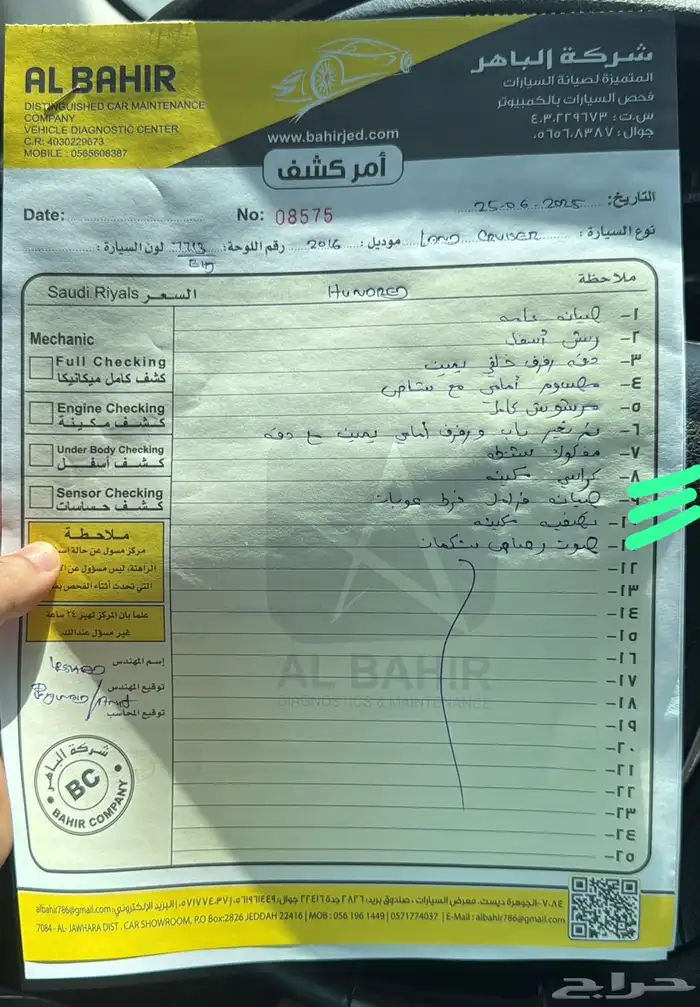 AL BAHIR
DISTINGUISHED CAR MAINTENANCE
COMPANY
VEHICLE DIAGNOSTIC CENTER
C.R: 4030229673
MOBILE : 0565608387
www.bahirjed.com
شركة الباهر
المتميزة لصيانة السيارات
فحص السيارات بالكمبيوتر
س.ت: ٤٠٣٠٢٢٩٦٧٣
جوال: ٠٥٦٥٦٠٨٣٨٧
أمر كشف
Date: No: 08575 التاريخ: 25.06.2025
نوع السيارة: LAND CRUISER موديل: 2016 رقم اللوحة: 7713 لون السيارة:
Saudi Riyals السعر HUNDRED ملاحظة
Mechanic
Full Checking
كشف كامل ميكانيكا
Engine Checking
كشف مكينة
Under Body Checking
كشف أسفل
Sensor Checking
كشف حساسات
١- صيانه عامه
٢- رش أسفل
٣- دقه رفرف خلفي يمين
٤- مقسوم أمامي مع شاص
٥- مرشوش كامل
٦- تم تغيير باب ورفرف أمامي يمين مع دقه
٧- مفكوك شنطه
٨- كراسي مكينه
٩- صيانه
١٠- مكينه
١١- صوت شكمان
١٢-
١٣-
١٤-
١٥-
١٦-
١٧-
١٨-
١٩-
٢٠-
٢١-
٢٢-
٢٣-
٢٤-
٢٥-
ملاحظة
مركز مسول عن حالة
الراهنة، ليس مسؤول عن
التي تحدث أثناء الفحص
علما بان المركز لهير ٢٤ ساعة
غير مسؤل عندالك
إسم المهندس
توقيع المهندس
توقيع المحاسب
شركة الباهر
BC
BAHIR COMPANY
AL BAHIR
DIAGNOSTICS & MAINTENANCE
٧٠٨٤-الجوهرة ديست. معرض السيارات، صندوق بريد: ٢٨٢٦ جدة ٢٢٤١٦ جوال: ٠٥٦١٩٦١٤٤٩ | ٠٥٧١٧٧٤٠٣٧ | البريد الإلكتروني: albahir786@gmail.com
7084 - AL- JAWHARA DIST . CAR SHOWROOM, P.O Box:2826 JEDDAH 22416 | MOB : 056 196 1449 | 0571774037 | E-Mail : albahir786@gmail.com
حراج